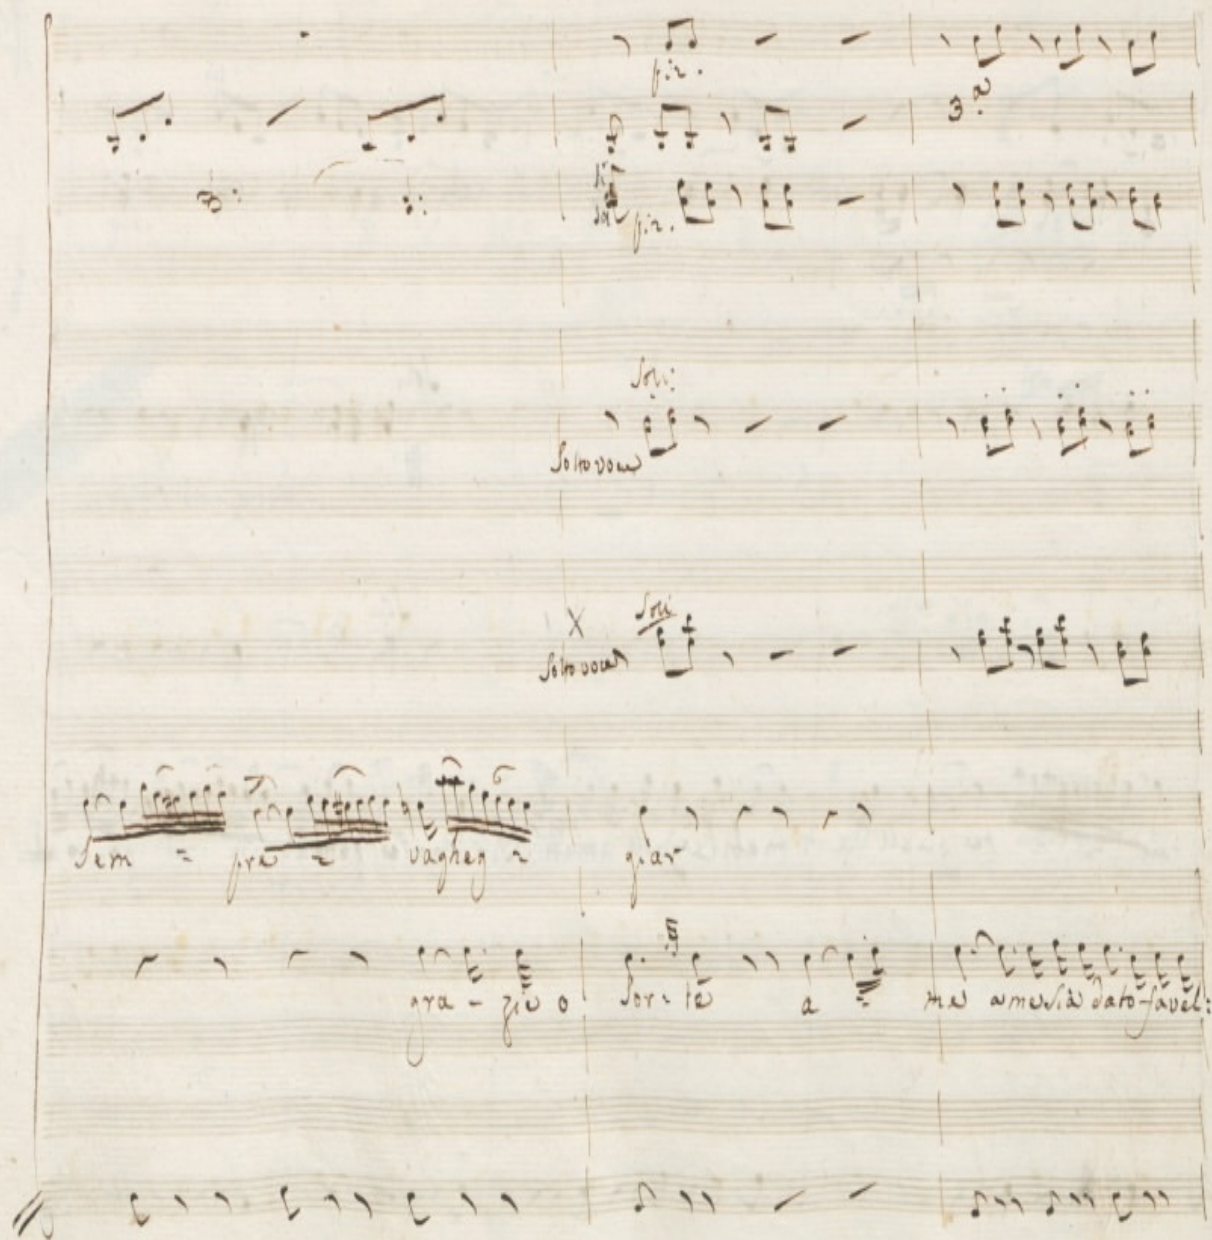 piz.
3.a
piz.
Soli:
Sottovoce
Soli
Sottovoce
Sem = pre = vagheg = giar
gra - zie o Sor = te a me a me sia dato favel: